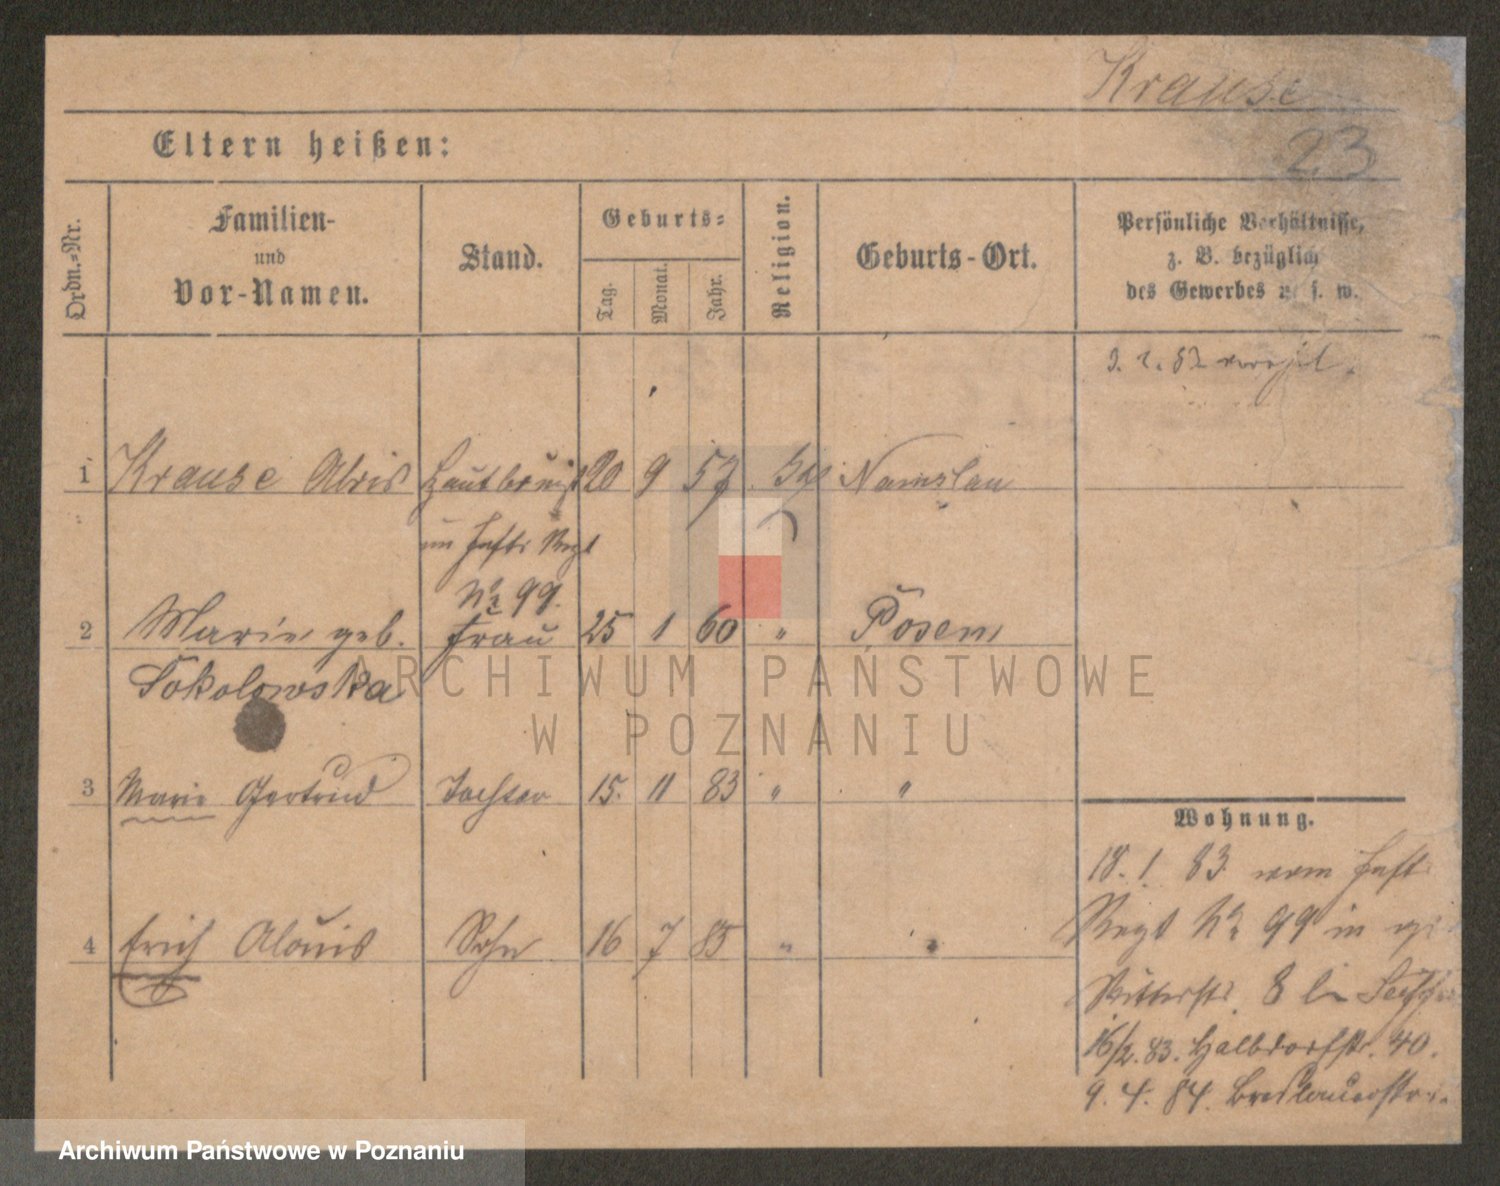 Krause
23
Eltern heißen:
Ordn.-Nr.
Familien-
und
Vor-Namen.
Stand.
Geburts-
Tag.
Monat.
Jahr.
Religion.
Geburts-Ort.
Persönliche Verhältnisse,
z. B. bezüglich
des Gewerbes u. s. w.
1 Krause Alois 20 9 57 Namslau
No 99.
2 Marie geb. Frau 25 1 60 " Posen
Sokolowska
3 Marie Gertrud Tochter 15. 11 83 " "
Wohnung.
18. 1. 83 vom
Regt No 99 in
4 Erich Alouis Sohn 16 7 85 " "
Ritterstr. 8
16/2. 83. Halbdorfstr. 40.
9. 4. 84. Breslauerstr.
ARCHIWUM PAŃSTWOWE
W POZNANIU
Archiwum Państwowe w Poznaniu